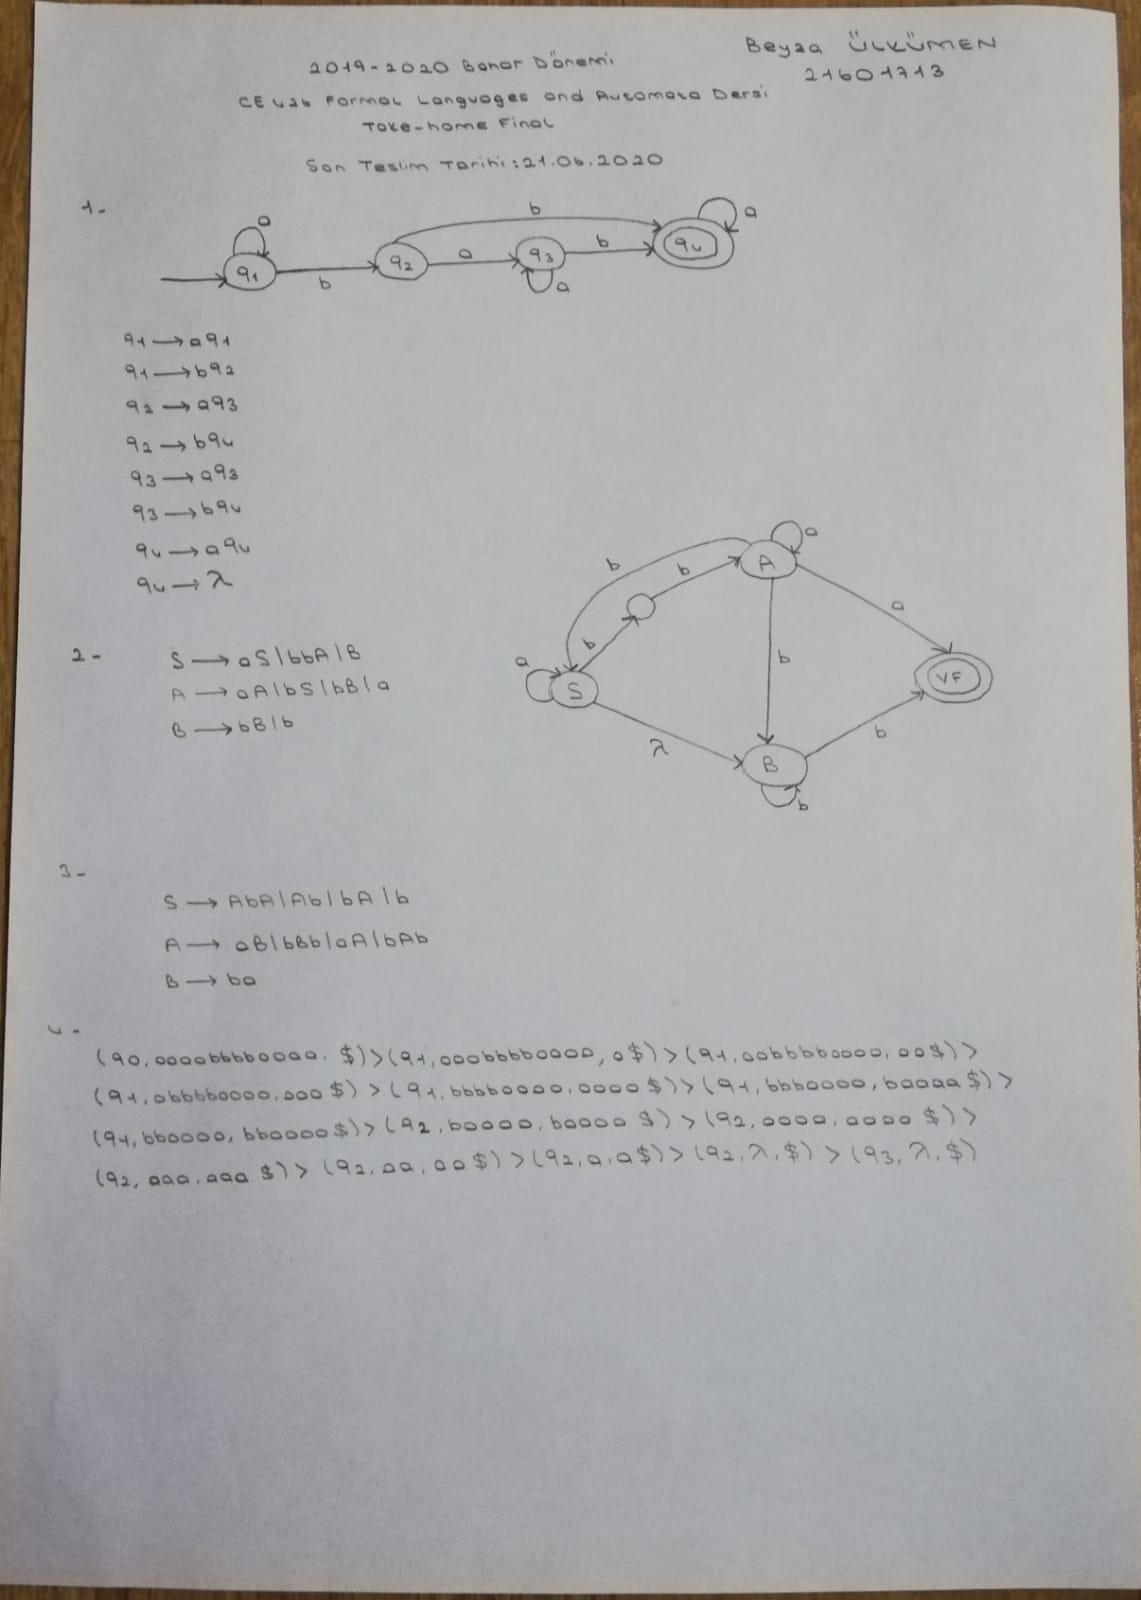 Beyza ÜLKÜMEN
21601713
2019-2020 Bahar Dönemi
CE 426 Formal Languages and Automata Dersi
Take-home Final
Son Teslim Tarihi: 21.06.2020
1-
a
b
a
q1
b
q2
a
q3
b
q4
a
q1 → aq1
q1 → bq2
q2 → aq3
q2 → bq4
q3 → aq3
q3 → bq4
q4 → aq4
q4 → λ
2-
S → aS|bbA|B
A → aA|bS|bB|a
B → bB|b
a
b
b
A
a
b
b
a
S
VF
λ
B
b
b
3-
S → AbA|Ab|bA|b
A → aB|bBb|aA|bAb
B → ba
4-
(q0, aaaabbbbaaaa, $)>(q1, aaabbbbaaaa, a$)>(q1, aabbbbaaaa, aa$)>
(q1, abbbbaaaa, aaa$) > (q1, bbbbaaaa, aaaa$)> (q1, bbbaaaa, baaaa$)>
(q1, bbaaaa, bbaaaa$)> (q2, baaaa, baaaa $) > (q2, aaaa, aaaa $) >
(q2, aaa, aaa $)> (q2, aa, aa$) >(q2, a, a$)> (q2, λ, $) > (q3, λ, $)